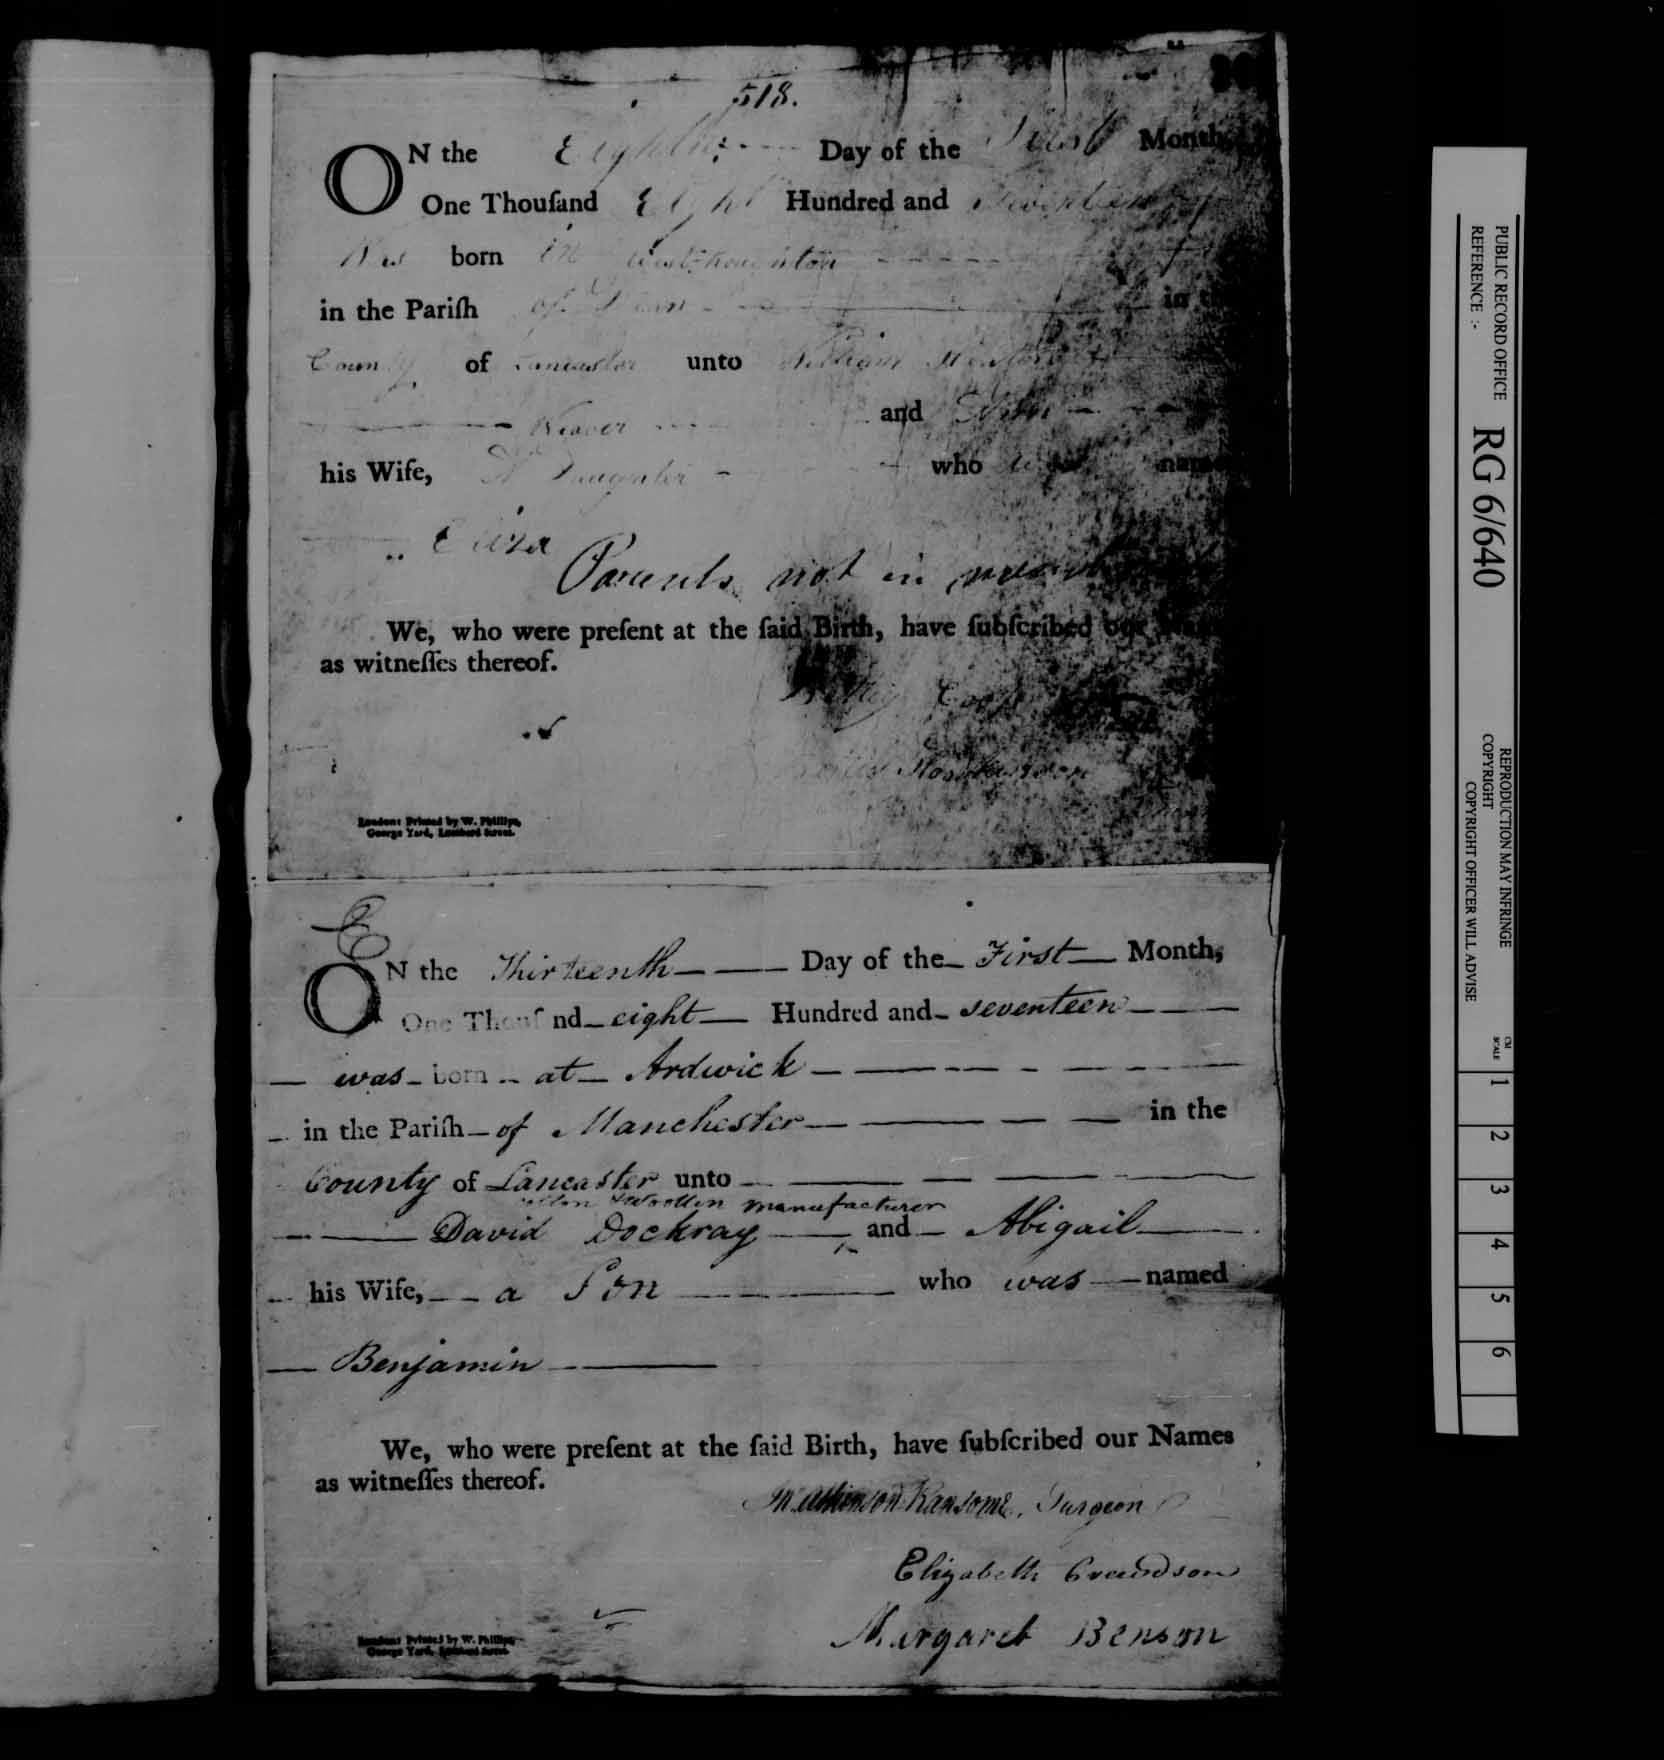 518.
ON the Eighth Day of the First Month,
One Thouſand Eight Hundred and Seventeen
Was born in Westhoughton
in the Pariſh of Dean in the
County of Lancaster unto William
Weaver and
his Wife, A Daughter who name
Eliza
Parents not in
We, who were preſent at the ſaid Birth, have ſubſcribed our
as witneſſes thereof.
Betty
London: Printed by W. Phillips,
George Yard, Lombard Street.
ON the Thirteenth Day of the First Month,
One Thouſ nd eight Hundred and seventeen
was born at Ardwick
in the Pariſh of Manchester in the
County of Lancaster unto
Woollen manufacturer
David Dockray and Abigail
his Wife, a Son who was named
Benjamin
We, who were preſent at the ſaid Birth, have ſubſcribed our Names
as witneſſes thereof.
Atkinson Ransome, Surgeon
Elizabeth
Margaret Benson
London: Printed by W. Phillips,
George Yard, Lombard Street.
PUBLIC RECORD OFFICE
REFERENCE :-
RG 6/640
REPRODUCTION MAY INFRINGE
COPYRIGHT
COPYRIGHT OFFICER WILL ADVISE
CM
SCALE
1
2
3
4
5
6